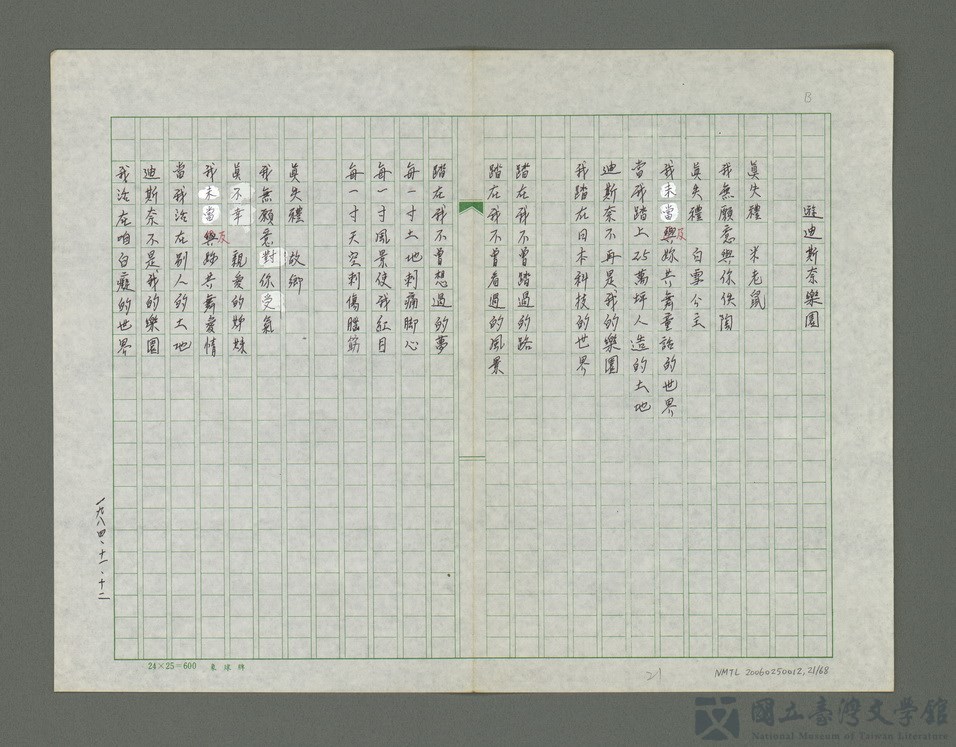 B
遊迪斯奈樂園
真失禮 米老鼠
我無願意與你佚陶
真失禮 白雪公主
我未當與妳共舞童話的世界
及
當我踏上25萬坪人造的土地
迪斯奈不再是我的樂園
我踏在日本科技的世界
踏在我不曾踏過的路
踏在我不曾看過的風景
踏在我不曾想過的夢
每一寸土地刺痛脚心
每一寸風景使我紅目
每一寸天空刺傷腦筋
真失禮 故鄉
我無願意對你受氣
真不幸 親愛的姊妹
我未當與妳共舞愛情
及
當我活在別人的土地
迪斯奈不是我的樂園
我活在咱白癡的世界
一九八四、十一、十二
24×25=600
21
NMTL 20060250012, 21/68
國立臺灣文學館
National Museum of Taiwan Literature